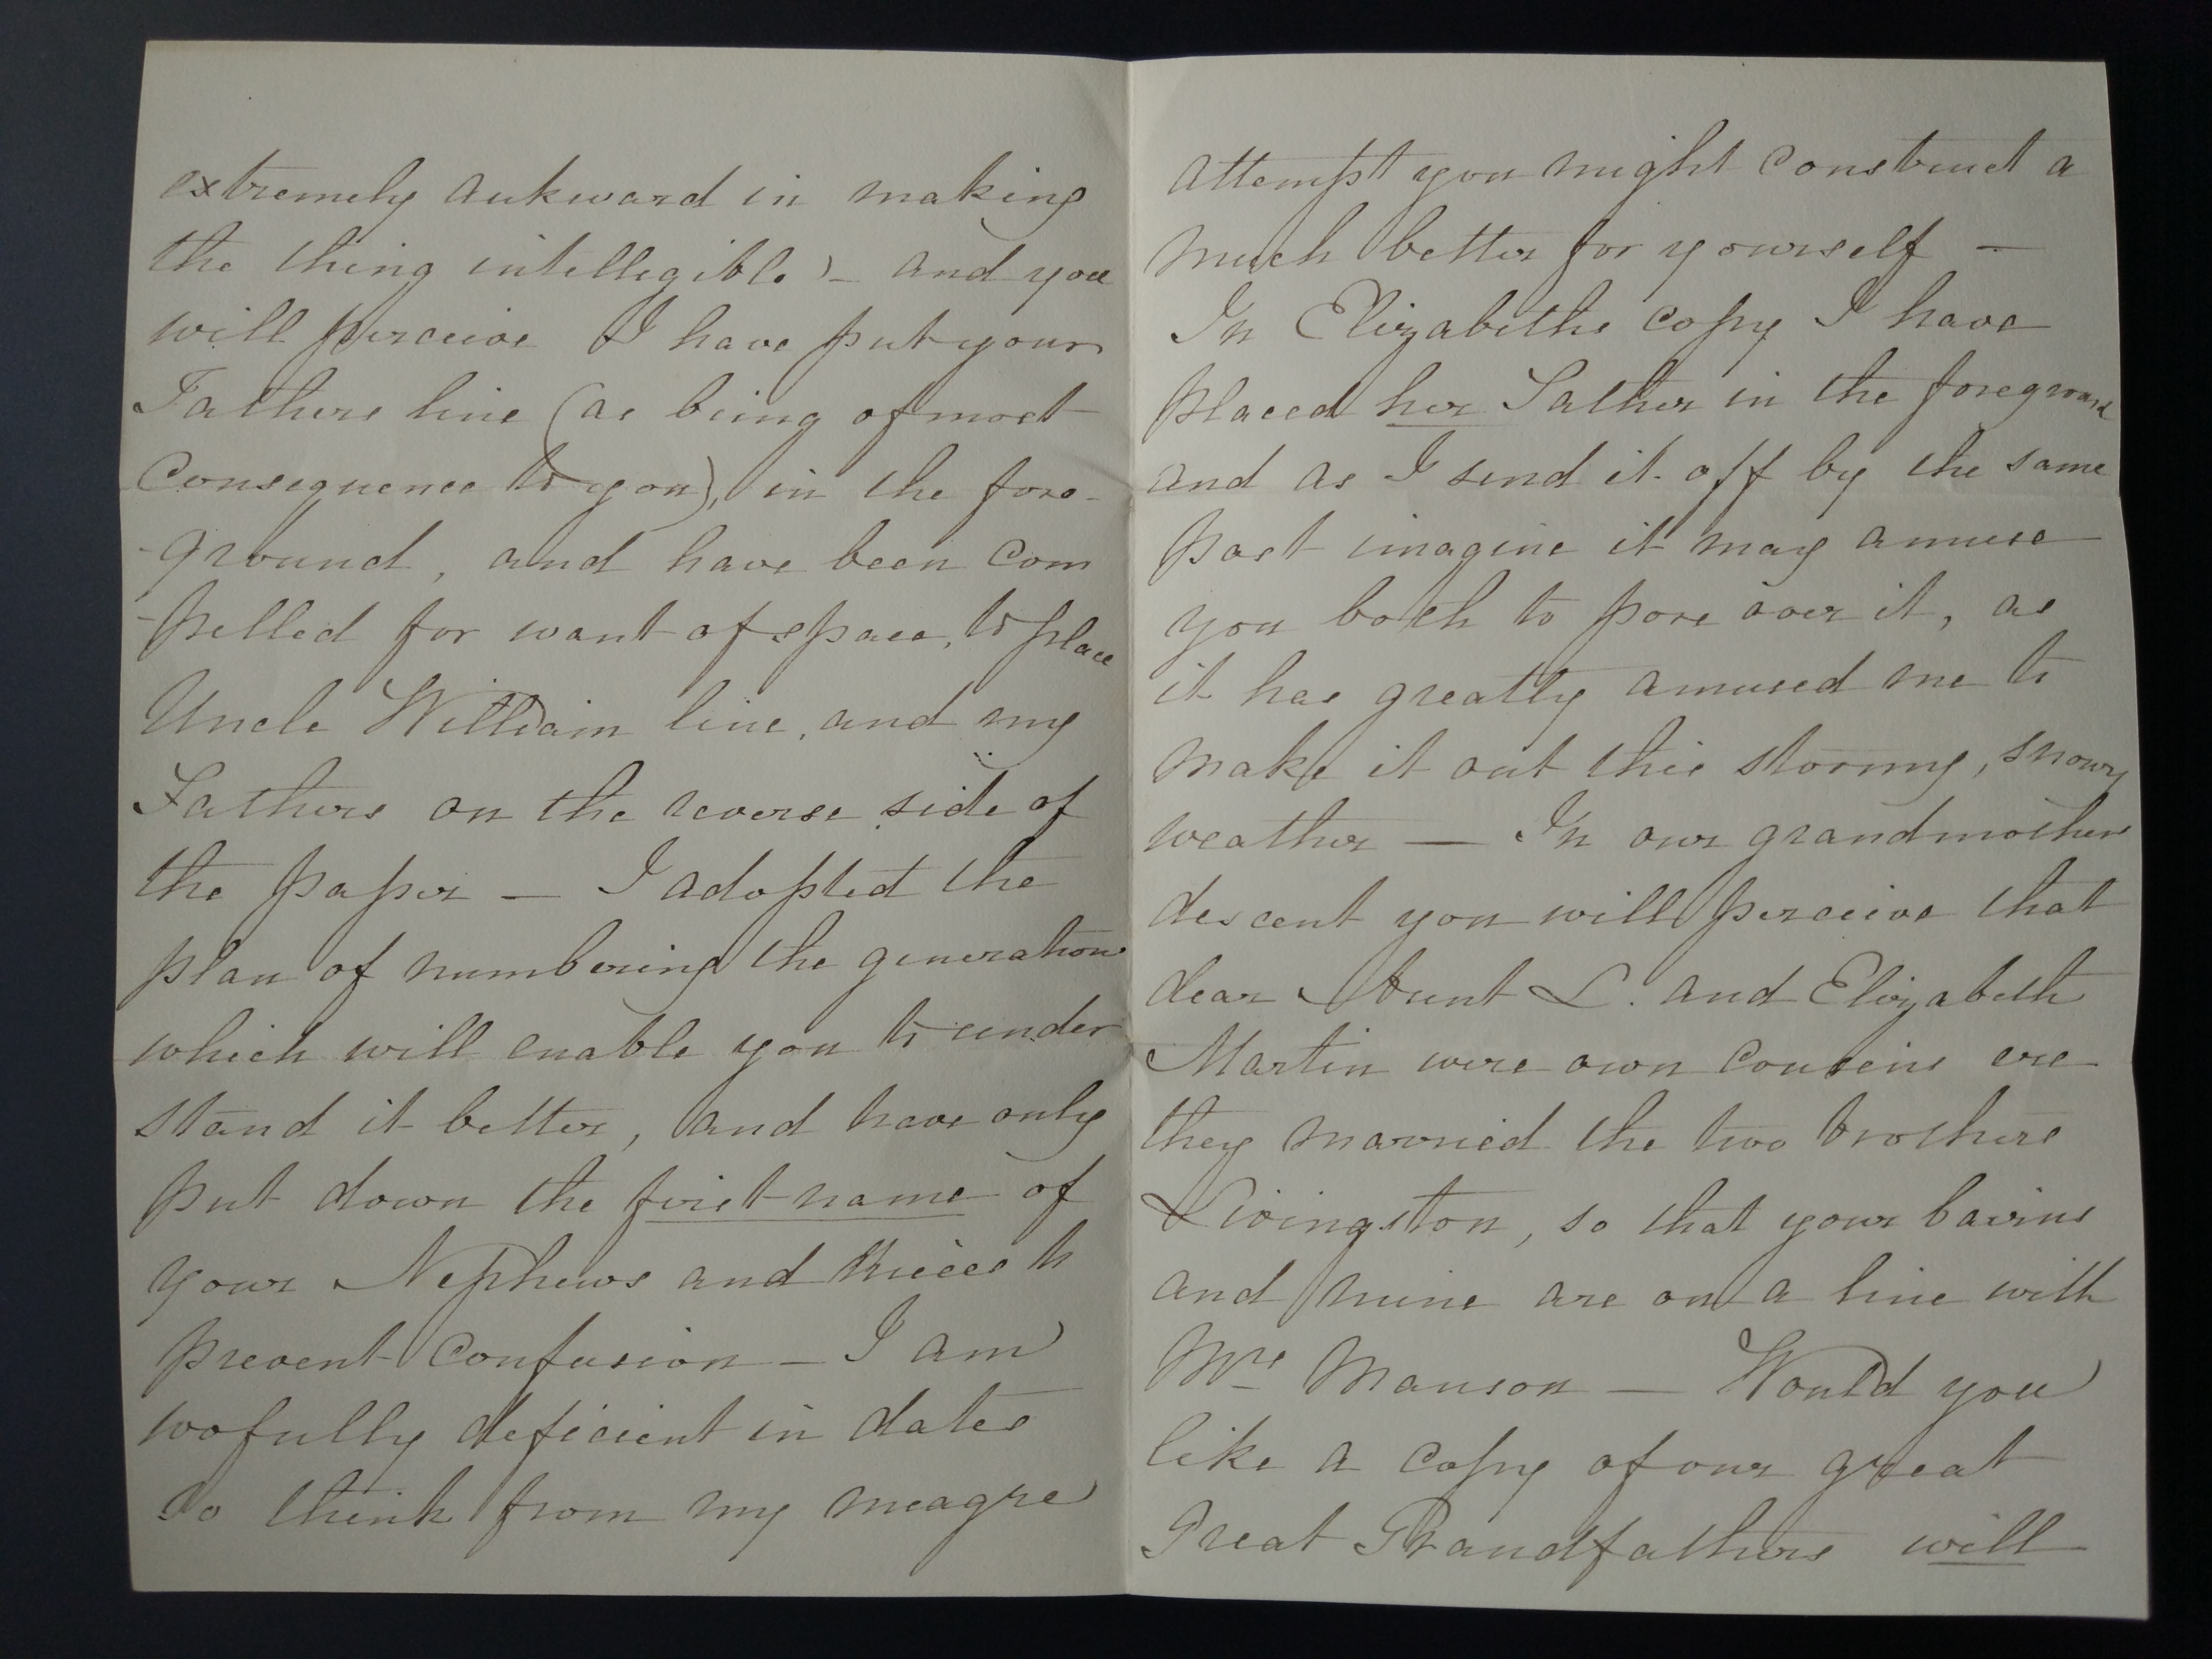 extremely aukward in making
the thing intellegible) - and you
will perceive I have put your
Fathers line (as being of most
Consequence to you), in the fore-
-ground, and have been com
-pelled for want of space, to place
Uncle William line, and my
Fathers on the reverse side of
the paper — I adopted the
plan of numbering the generations
which will enable you to under
stand it better, and have only
put down the first name of
your Nephews and Nieces to
prevent Confusion — I am
wofully deficient in dates
So think from my meagre
attempt you might construct a
much better for yourself —
In Elizabeths copy I have
placed her Father in the foreground
and as I send it off by the same
post imagine it may amuse
you both to pore over it, as
it has greatly amused me to
make it out this stormy, snowy
weather — In our grandmothers
descent you will perceive that
dear Aunt L. and Elizabeth
Martin were own Cousins ere
they married the two brothers
Livingston, so that your bairns
and mine are on a line with
Mrs Manson — Would you
like a copy of our great
Great Grandfathers will